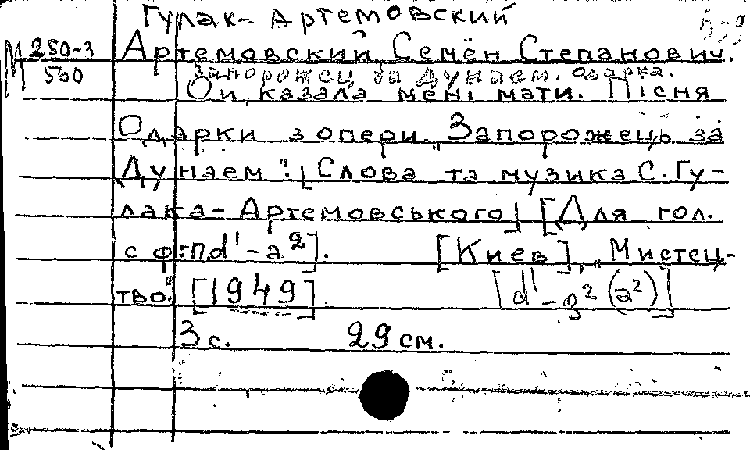 Гулак-Артемовский
М 250-3
560
Артемовский, Семён Степанович.
Запорожец за Дунаем. Одарка.
Ой казала мені мати. Пісня
Одарки з опери „Запорожець за
Дунаем". [Слова та музика С. Гу-
лака-Артемовського] [Для гол.
с ф-п d¹-a²]. [Киев], „Мистец-
тво". [1949]. [d¹-g² (a²)]
3 с. 29 см.